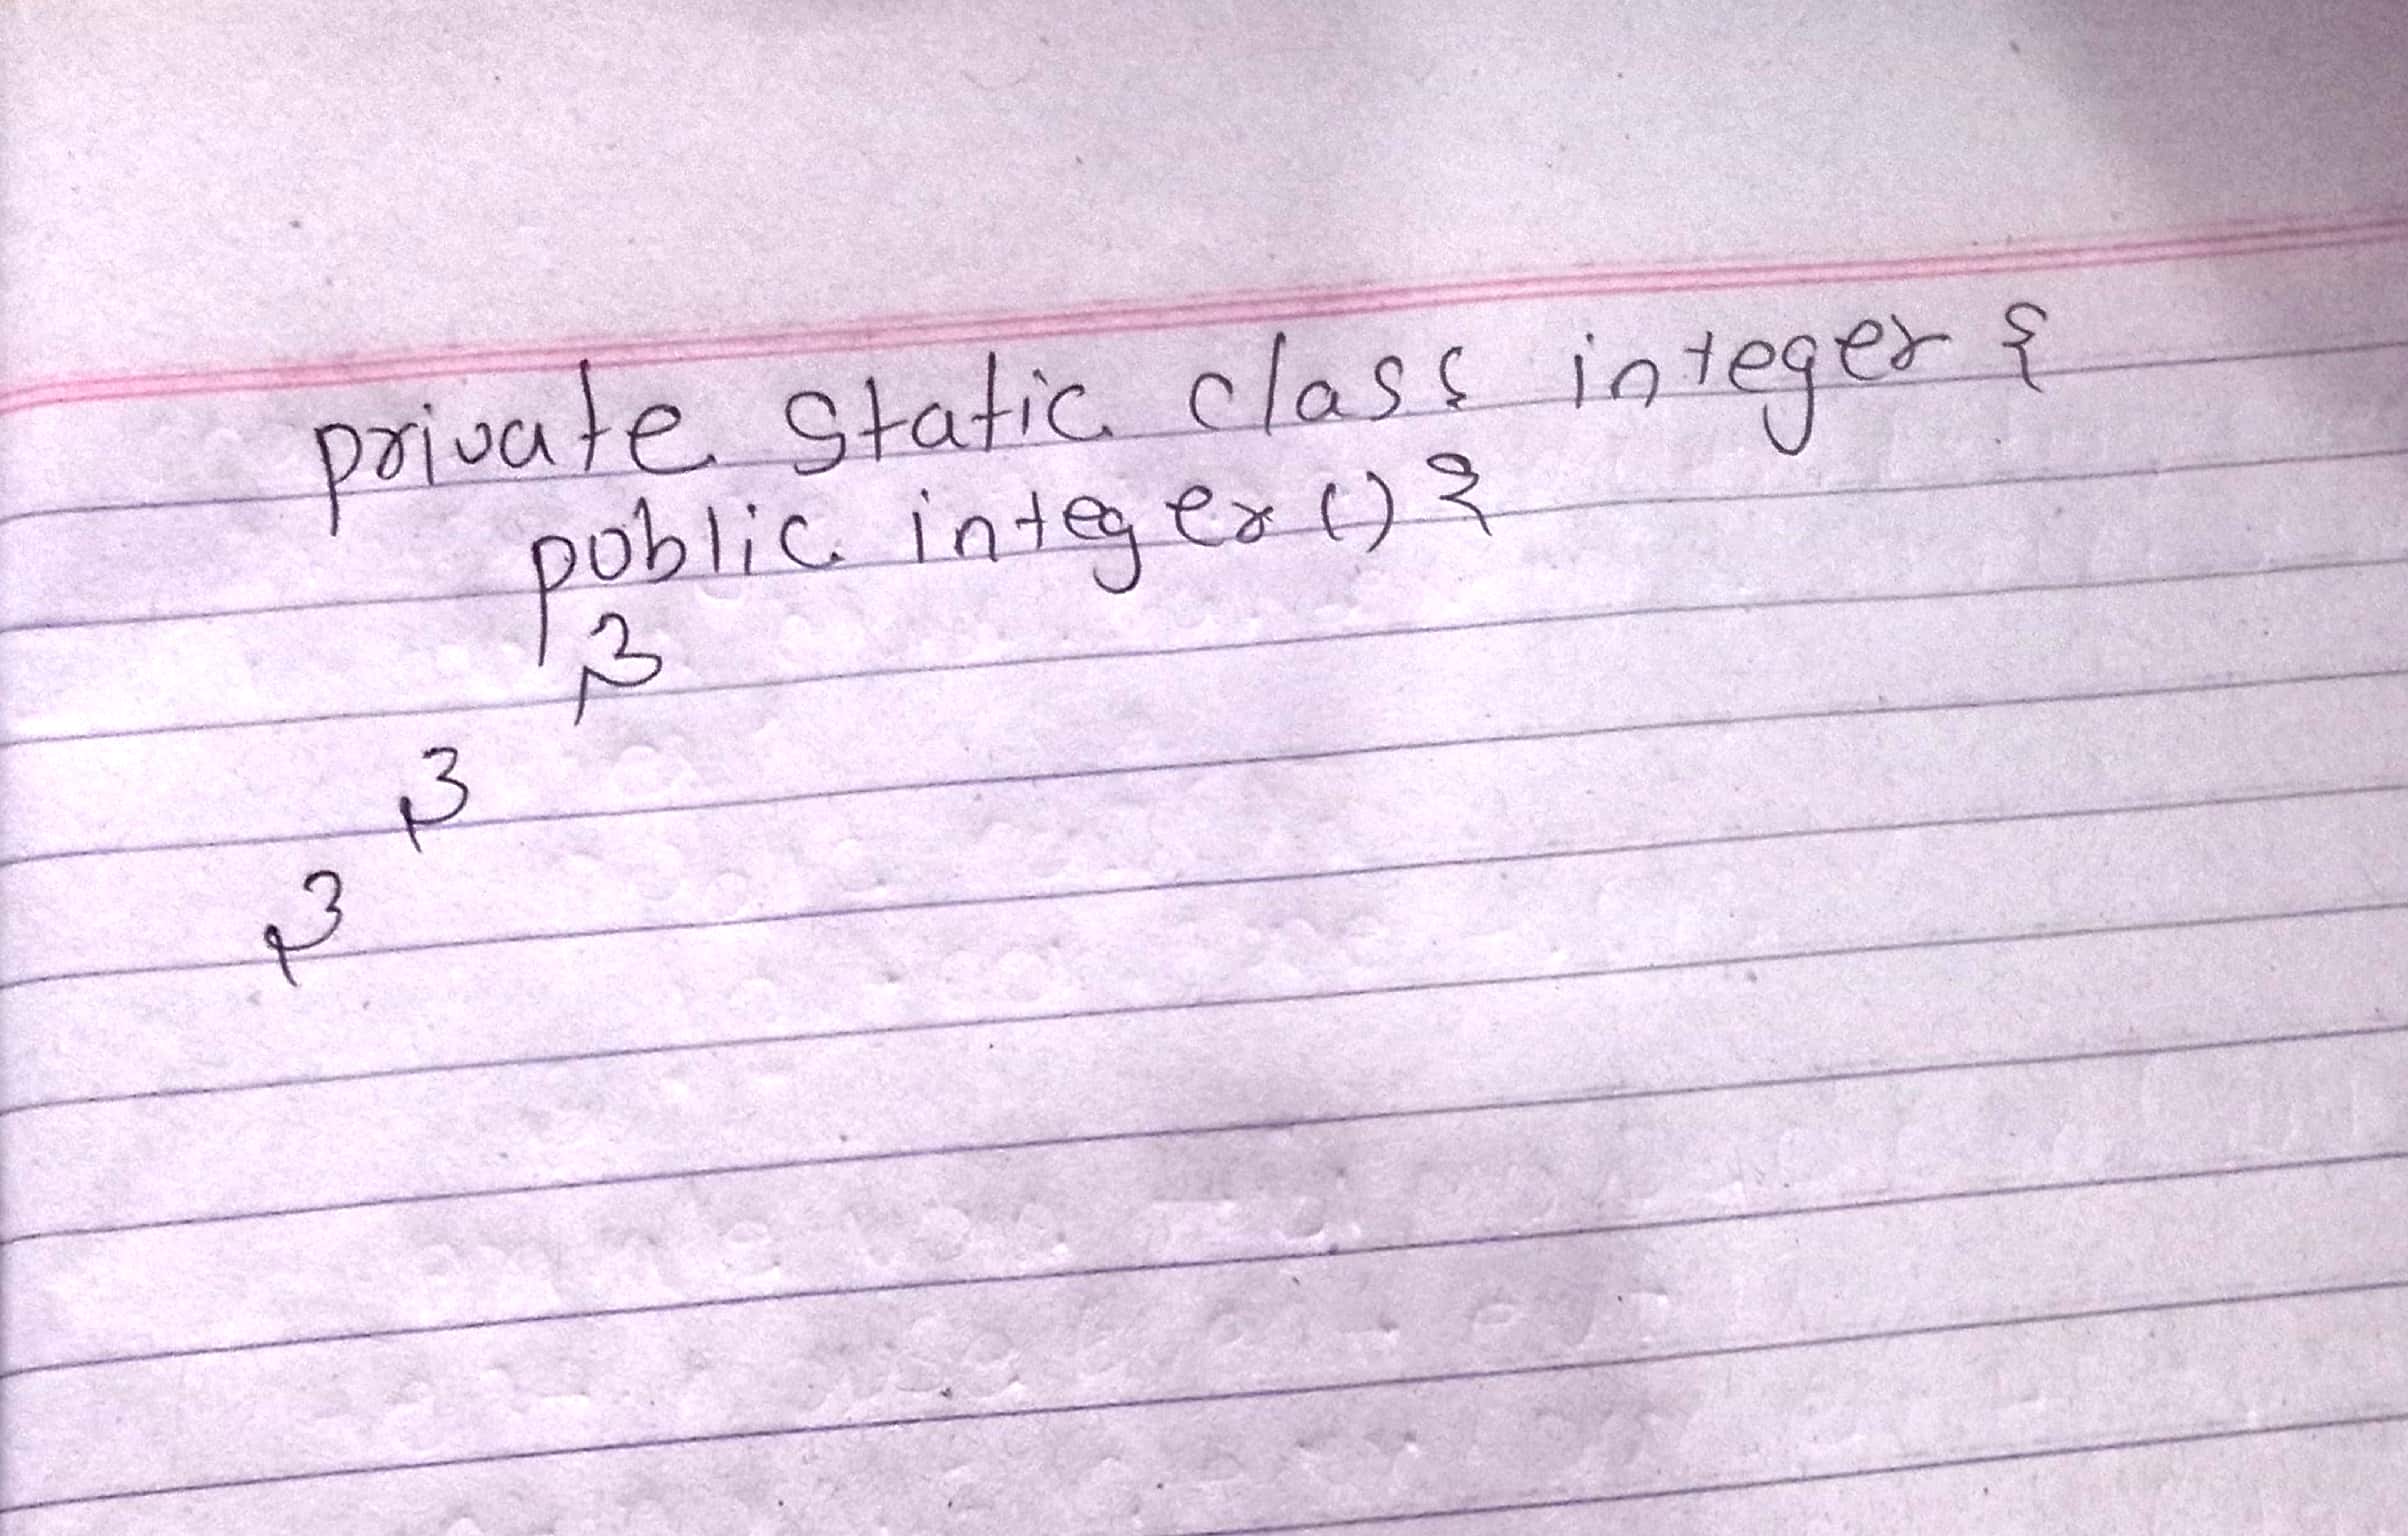 private static class integer {
public integer () {
}
}
}